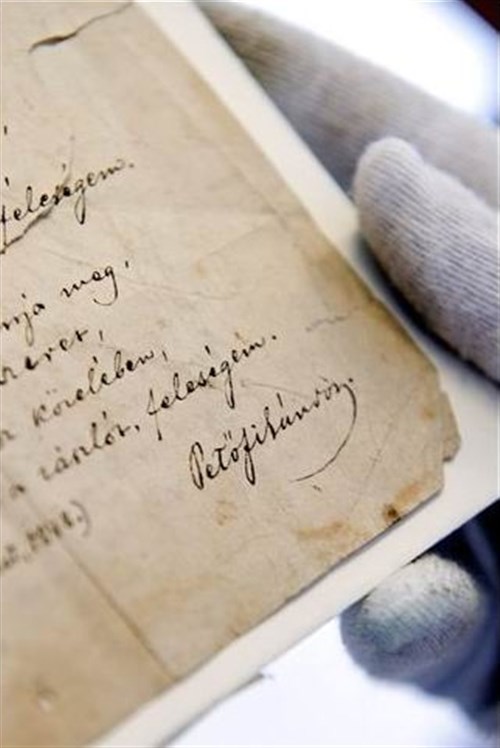 feleségem.
nja meg,
szeret,
közelében,
a zászlót, feleségem.
Petőfi Sándor.
1848.)